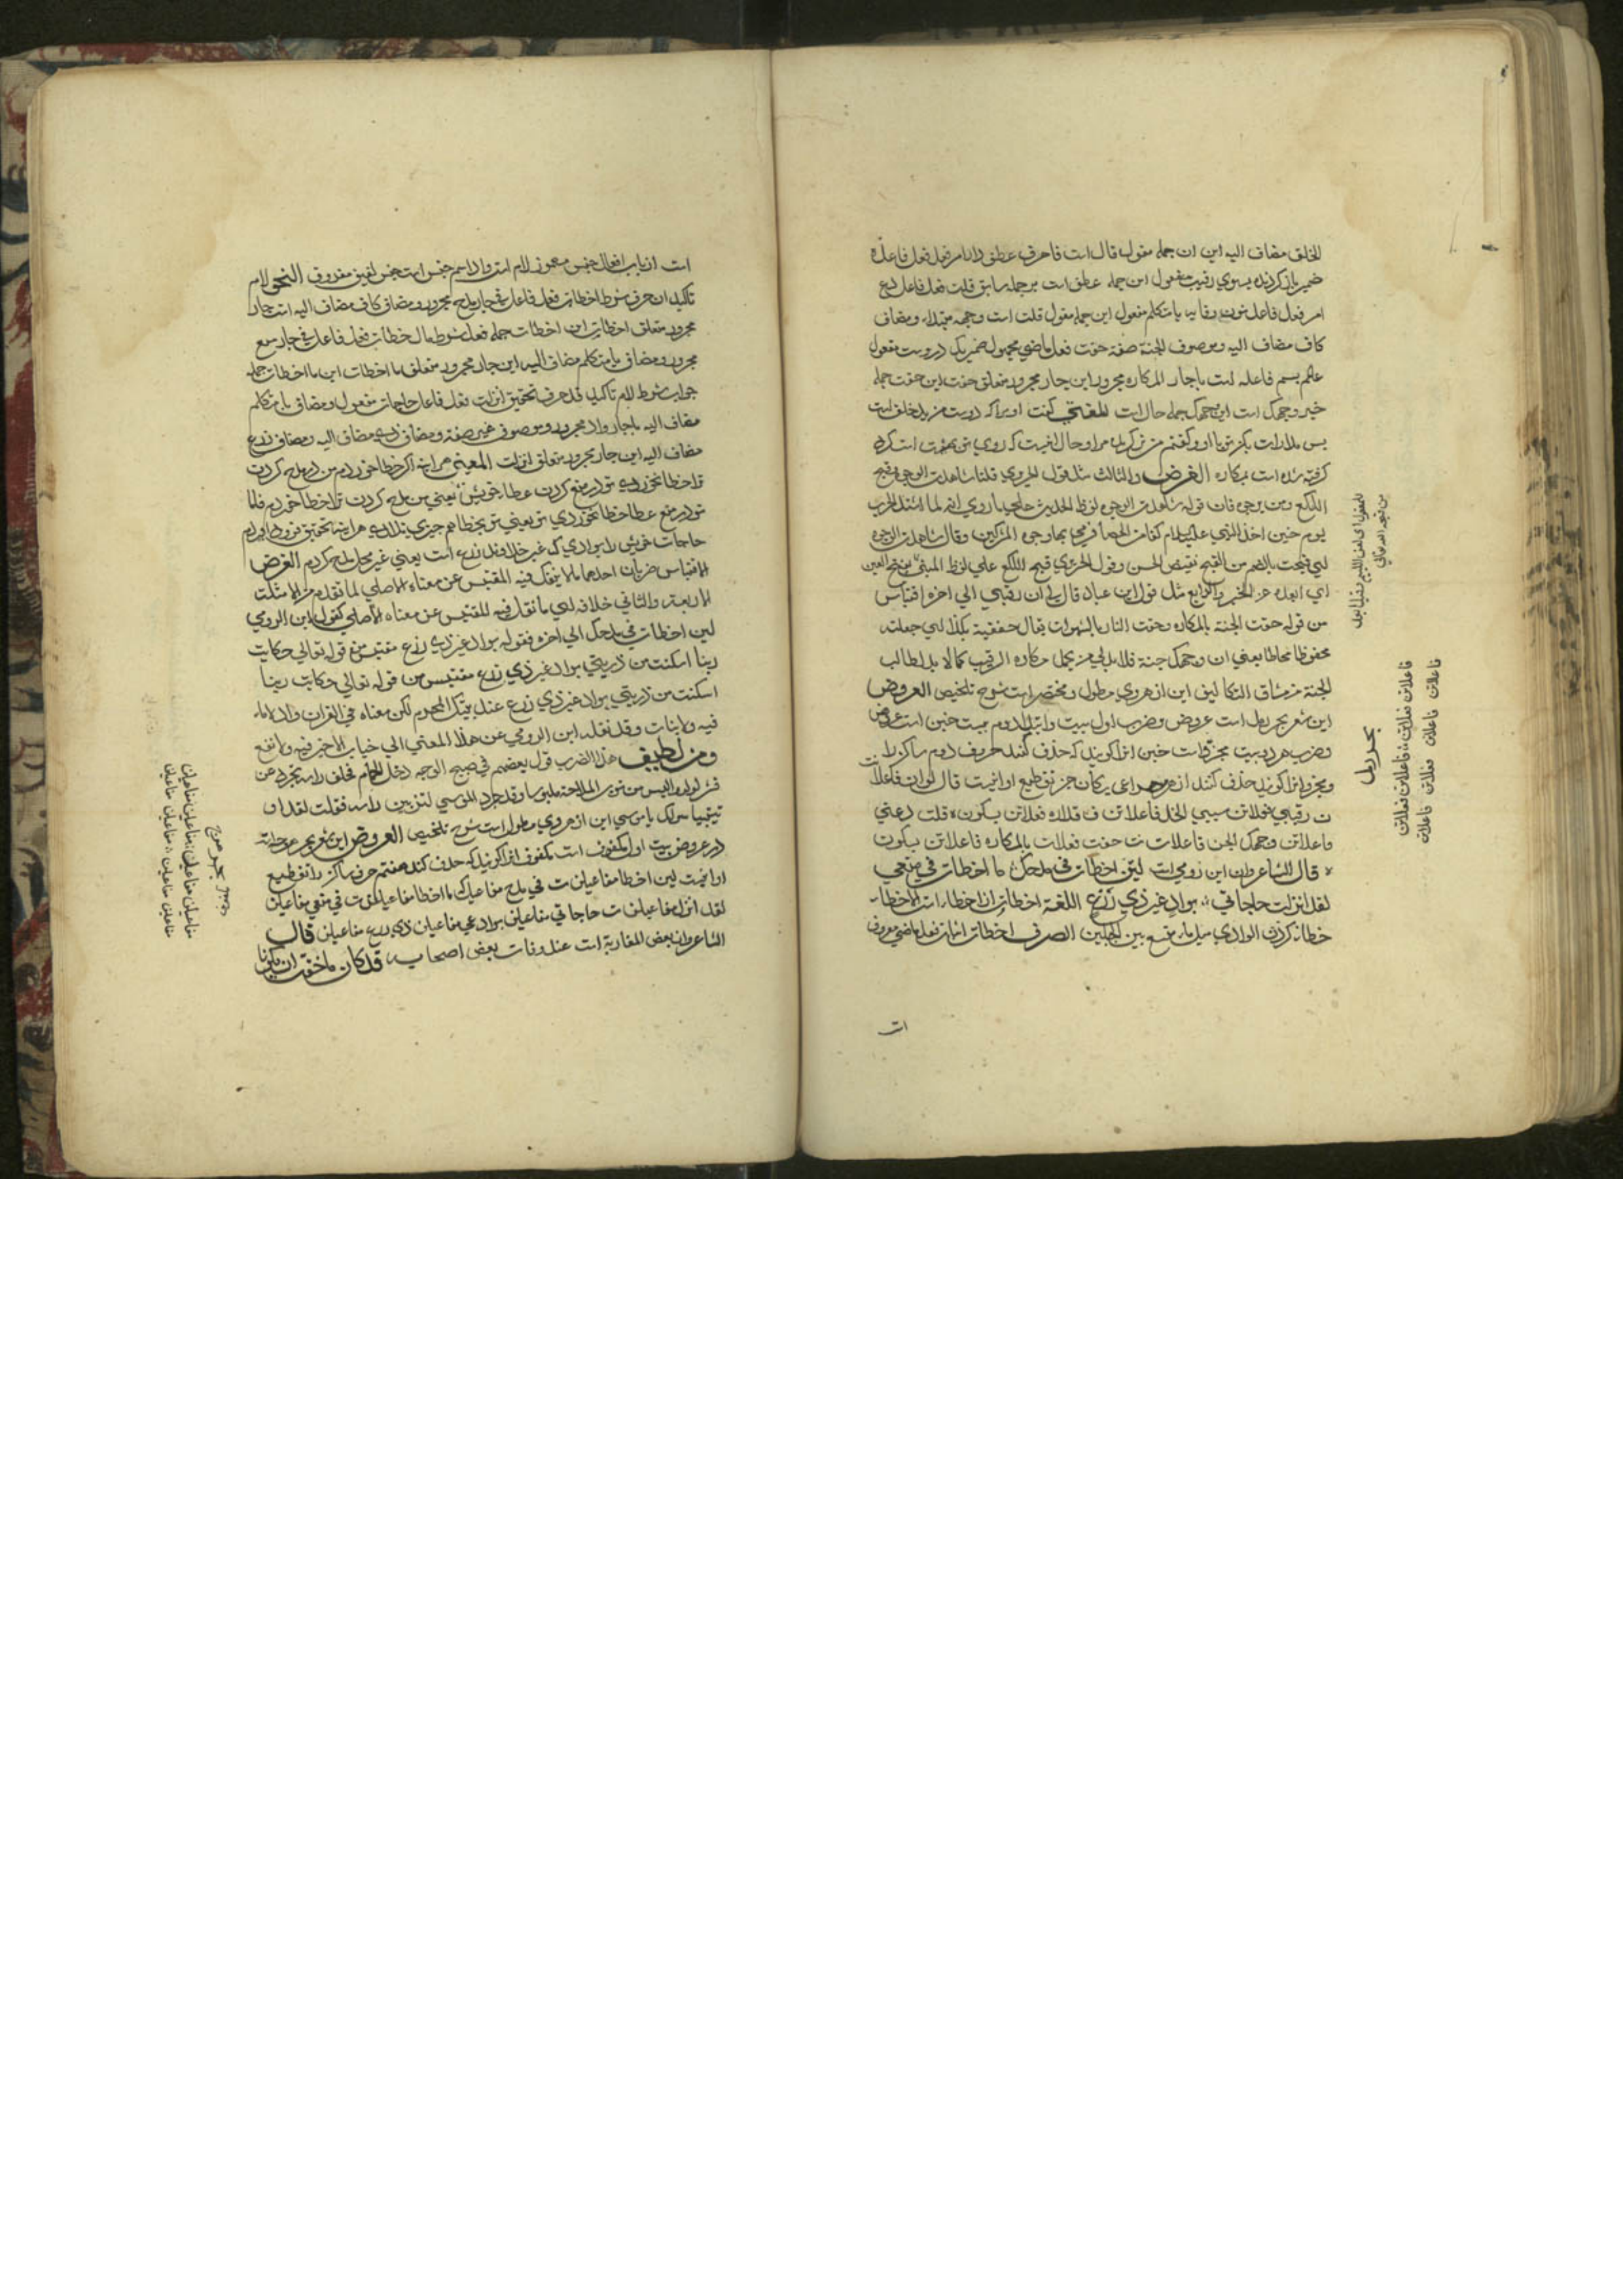 الخلق مضاف اليه اين ان جمله مقول قال است فا حرف عطف دار امر فعل فعل فاعل ه
ضمير باز كردنده بسوي رقيب مفعول اين جمله عطف است بر جمله سابق قلت فعل فاعل دع
امر فعل فاعل نون وقايه يا متكلم مفعول اين جمله مقول قلت است وجه مبتداء ومضاف
كاف مضاف اليه وموصوف الجنة صفة حفت فعل ماضي مجهول ضمير يك دروست مفعول
باجار المكاره مجرور اين جار مجرور متعلق حفت اين حفت جمله
خبر وجهك است اين وجهك جمله حال است المعني كفت او مرا كه رقيب من بد خلق است
بس مدارات بكن تو با او وكفتم من ترك بده مرا وحال اينست كه روي تو بهشت است كرد
كرفته شده است بمكاره الغرض والثالث مثل قول الحريري قلنا شاهت الوجوه وقبح
اللكع ومن يرجوه فان قوله شاهدت الوجوه لفظ الحديث علي ما روي انه لما اشتد الحرب
يوم حنين اخذ النبي عليه السلام كفا من الحصا فرمي بها وجوه المشركين وقال شاهت الوجوه
اي قبحت بالضم من القبح نقيض الحسن وقول الحريري قبح اللكع علي لفظ المبني
اي ابعده عن الخير والرابع مثل قول ابن عباد قال لي ان رقيبي الي اخره اقتباس
من قوله حفت الجنة بالمكاره وحفت النار بالشهوات يقال حففته بكذا اي جعلته
محفوظا محاطا يعني ان وجهك جنة فلا بد لي من تحمل مكاره الرقيب كما لا بد لطالب
الجنة من مشاق التكاليف اين از هروي مطول ومختصر است شرح تلخيص العروض
اين شعر بحر رمل است عروض وضرب اول بيت وابتدا دوم بيت خبن است عروض
وضرب هر دو بيت مجزو است خبن انرا كويند كه حذف كنند حرف دوم ساكن را
ومجزو انرا كويند حذف كنند از هر مصراعي يكان جز تقطيع او اينست قال لي ان فاعلات
ن رقيبي فعلاتن سيي الخل فاعلاتن ق فداره فعلاتن بسكون ه قلت دعني
فاعلاتن وجهك الجن فاعلات ت حفت فعلات بالمكاره فاعلاتن بسكون
ه قال الشاعر وان ابن رومي است لئن اخطات في مدحك ما اخطات في منعي
لقد انزلت حاجاتي بواد غير ذي زرع اللغة اخطات از اخطاء است الاخطاء
خطا كردن الوادي سيل ما يتسع بين الجبلين الصرف اخطات انزلت فعل ماضي معروف
است
بحر رمل
فاعلاتن فعلاتن فاعلاتن فعلاتن
فاعلاتن فاعلات فعلاتن فاعلات
است از باب افعال جنس مهموز لام است واد اسم جنس است جنس لفيف مفروق النحو لام
تاكيد ان حرف شرط اخطات فعل فاعل في جار مدح مجرور ومضاف كاف مضاف اليه است جار
مجرور متعلق اخطات اين اخطات جمله فعل شرط ما اخطات فعل فاعل في جار منع
مجرور ومضاف يا متكلم مضاف اليه اين جار مجرور متعلق ما اخطات اين ما اخطات جمله
جواب شرط لام تاكيد قد حرف تحقيق انزلت فعل فاعل حاجات مفعول ومضاف يا متكلم
مضاف اليه باجار واد مجرور وموصوف غير صفة ومضاف ذي مضاف اليه ومضاف زرع
مضاف اليه اين جار مجرور متعلق انزلت المعني هر اينه اكر خطا خوردم من در مدح كردن
ترا خطا نخوردي تو در منع كردن عطا خويش يعني من مدح كردن ترا خطا خوردم فاما
تو در منع عطا خطا نخوردي تو يعني تو بخطا هم چيزي ندادي هر اينه تحقيق فرود اوردم
حاجات خويش را بوادي كه غير خداوند زرع است يعني غير محل مدح كردم الغرض
الاقتباس ضربان احدهما ما لا ينقل فيه المقتبس عن معناه الاصلي لما تقدم من الامثلة
الاربعة والثاني خلافه اي ما نقل فيه المقتبس عن معناه الاصلي كقول ابن الرومي
لين اخطات في مدحك الي اخره فقوله بواد غير ذي زرع مقتبس من قوله تعالي حكاية
ربنا اسكنت من ذريتي بواد غير ذي زرع مقتبس من قوله تعالي حكايت ربنا
اسكنت من ذريتي بواد غير ذي زرع عند بيتك المحرم لكن معناه في القران واد لا ماء
فيه ولا نبات وقد نقله ابن الرومي عن هذا المعني الي جناب لا خير فيه ولا نفع
ومن لطيف هذا الضرب قول بعضهم في صبيح الوجه دخل الحمام فحلق راسه تجرد عن
قشر لولو والبس من ثوب الملاحة ملبوسا وقد جرد الموسي لتزيين راسه فقلت لقد او
تيت سولك يا موسي اين از هروي مطول است شرح تلخيص العروض اين شعر بحر هزج است
در عروض بيت اول مكفوف است مكفوف انرا كويند كه حذف كند هفتم حرف ساكن را تقطيع
او اينست لين اخطا مفاعيلن ت في مدح مفاعيل ك ما اخطا مفاعيلن ت في منعي مفاعيلن
لقد انزل مفاعيلن ت حاجاتي مفاعيلن بواد غي مفاعيلن ر ذي زرع مفاعيلن قال
الشاعر وان بعض المغاربة است عند وفات بعض اصحابه قد كان ما خفت ان يكونا
بحر هزج
مفاعيلن مفاعيلن مفاعيلن مفاعيلن
مفاعيلن مفاعيلن مفاعيلن مفاعيلن